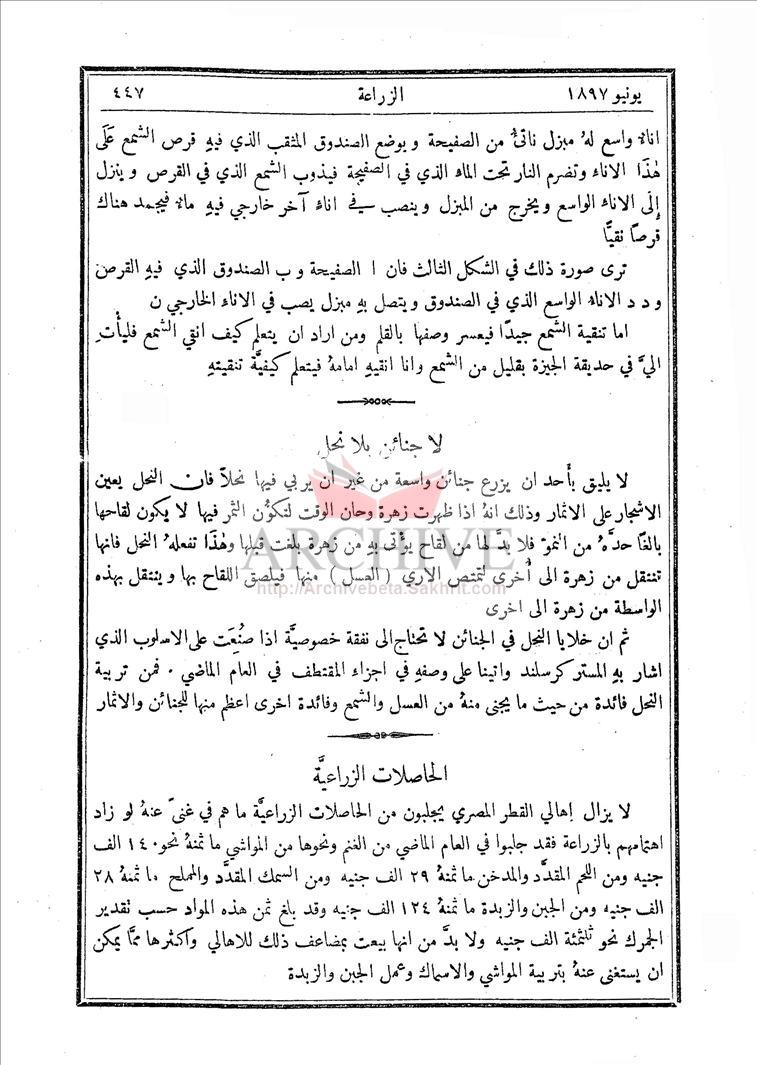 يونيو ١٨٩٧ الزراعة ٤٤٧
اناءٌ واسع لهُ مبزل ناتئٌ من الصفيحة ويوضع الصندوق المثقب الذي فيهِ قرص الشمع عَلَى
هٰذَا الاناء وتضرم النار تحت الماء الذي في الصفيحة فيذوب الشمع الذي في القرص وينزل
إِلَى الاناء الواسع ويخرج من المبزل وينصب في اناءٍ آخر خارجي فيهِ ماءٌ فيجمد هناك
قرصاً نقيًّا
ترى صورة ذلك في الشكل الثالث فان ا الصفيحة و ب الصندوق الذي فيهِ القرص
و د د الاناء الواسع الذي في الصندوق ويتصل بهِ مبزل يصب في الاناء الخارجي ن
اما تنقية الشمع جيدًا فيعسر وصفها بالقلم ومن اراد ان يتعلم كيف انقي الشمع فليأْتِ
اليَّ في حديقة الجيزة بقليل من الشمع وانا انقيهِ امامهُ فيتعلم كيفيَّة تنقيتهِ
لا جنائن بلا نحل
لا يليق بأَحد ان يزرع جنائن واسعة من غير ان يربي فيها نحلاً فان النحل يعين
الاشجار على الاثمار وذلك انهُ اذا ظهرت زهرة وحان الوقت لتكوُّن الثمر فيها لا يكون لقاحها
بالغًا حدَّهُ من النموّ فلا بدَّ لها من لقاح يؤْتى بهِ من زهرة بلغت قبلها وهٰذا تفعلهُ النحل فانها
تنتقل من زهرة الى أُخرى لتمتص الاري (العسل) منها فيلصق اللقاح بها وينتقل بهذه
الواسطة من زهرة الى اخرى
ثم ان خلايا النحل في الجنائن لا تحتاج الى نفقة خصوصيَّة اذا صُنِعَت على الاسلوب الذي
اشار بهِ المستر كرسلند واتينا على وصفهِ في اجزاء المقتطف في العام الماضي . فمن تربية
النحل فائدة من حيث ما يجنى منهُ من العسل والشمع وفائدة اخرى اعظم منها للجنائن والاثمار
الحاصلات الزراعيَّة
لا يزال اهالي القطر المصري يجلبون من الحاصلات الزراعيَّة ما هم في غنىً عنهُ لو زاد
اهتمامهم بالزراعة فقد جلبوا في العام الماضي من الغنم ونحوها من المواشي ما ثمنهُ نحو ١٤٠ الف
جنيه ومن اللحم المقدَّد والمدخن ما ثمنهُ ٢٩ الف جنيه ومن السمك المقدَّد والمملح ما ثمنهُ ٢٨
الف جنيه ومن الجبن والزبدة ما ثمنهُ ١٢٤ الف جنيه وقد بلغ ثمن هذه المواد حسب تقدير
الجمرك نحو ثلثمئة الف جنيه ولا بدَّ من انها بيعت بمضاعف ذلك للاهالي واكثرها ممَّا يمكن
ان يستغنى عنهُ بتربية المواشي والاسماك وعمل الجبن والزبدة
ARCHIVE
http://Archivebeta.Sakhrit.com